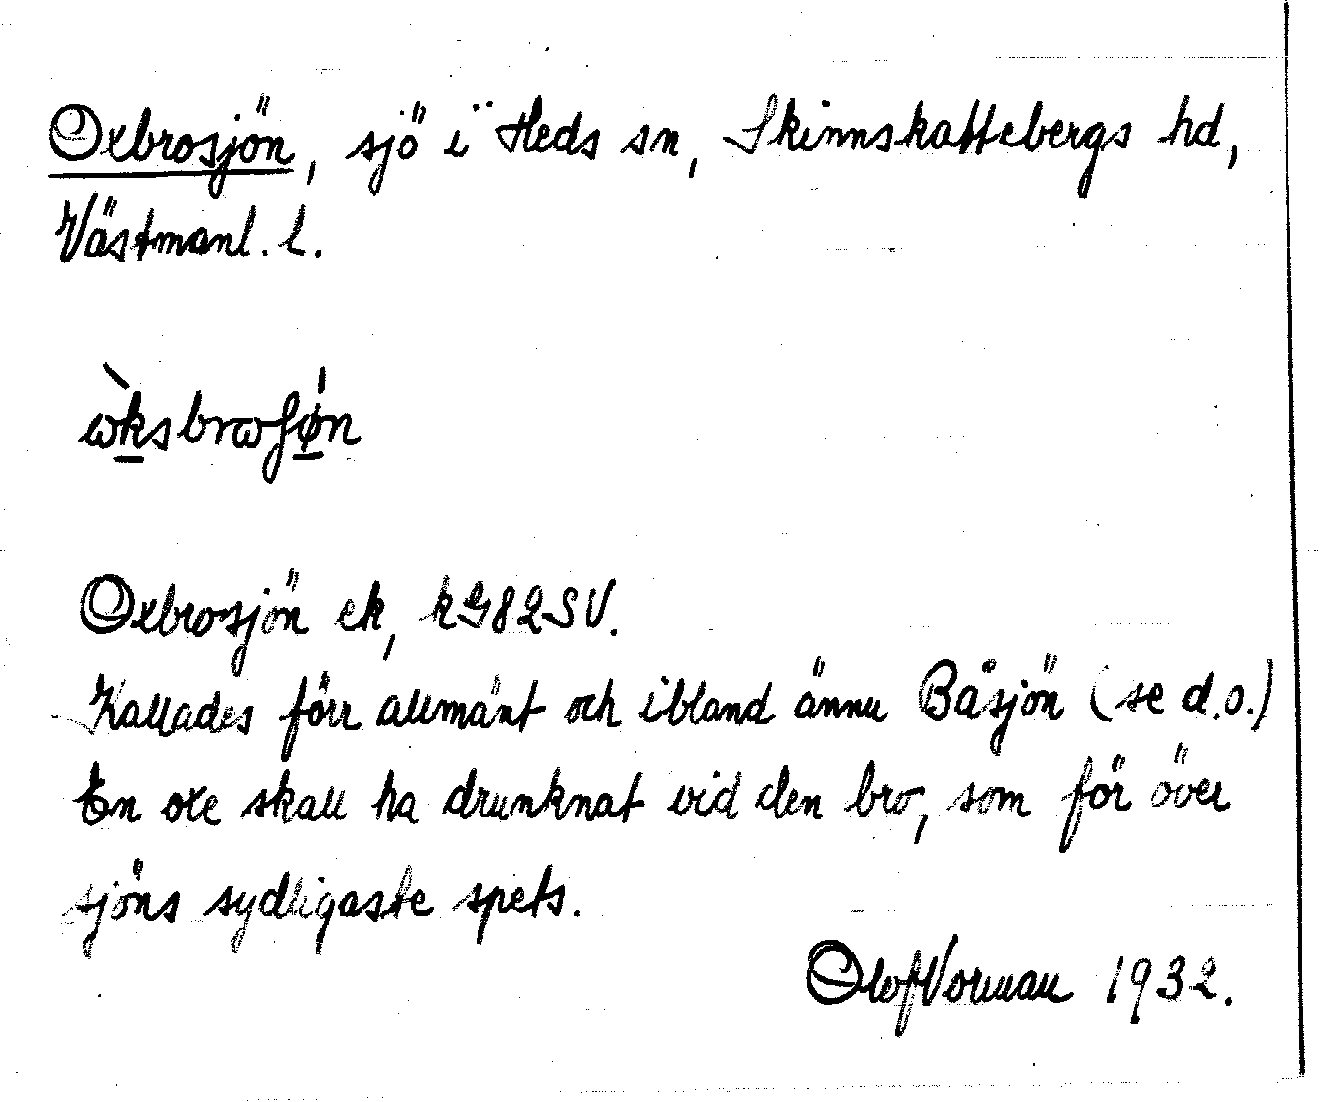 Oxbrosjön, sjö i Heds sn, Skinnskattebergs hd,
Västmanl. l.
ὼksbrωʃø̍n
Oxbrosjön ek, kG82SV.
Kallades förr allmänt och ibland ännu Båsjön (se d.o.)
En oxe skall ha drunknat vid den bro, som för över
sjöns sydligaste spets.
Olof Vorman 1932.